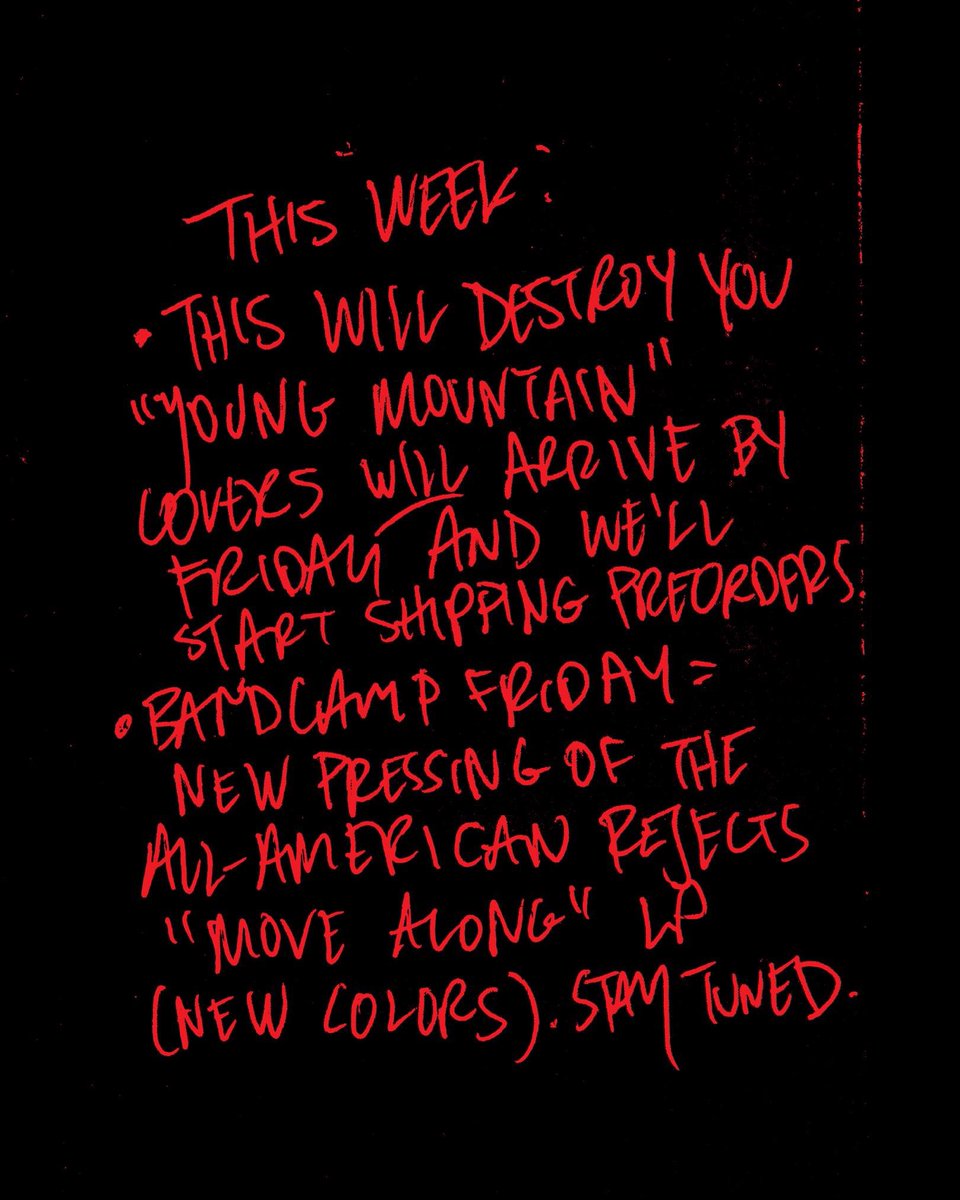 THIS WEEK:
• THIS WILL DESTROY YOU
"YOUNG MOUNTAIN"
COVERS WILL ARRIVE BY
FRIDAY AND WE'LL
START SHIPPING PREORDERS.
• BANDCAMP FRIDAY =
NEW PRESSING OF THE
ALL-AMERICAN REJECTS
"MOVE ALONG" LP
(NEW COLORS). STAY TUNED.